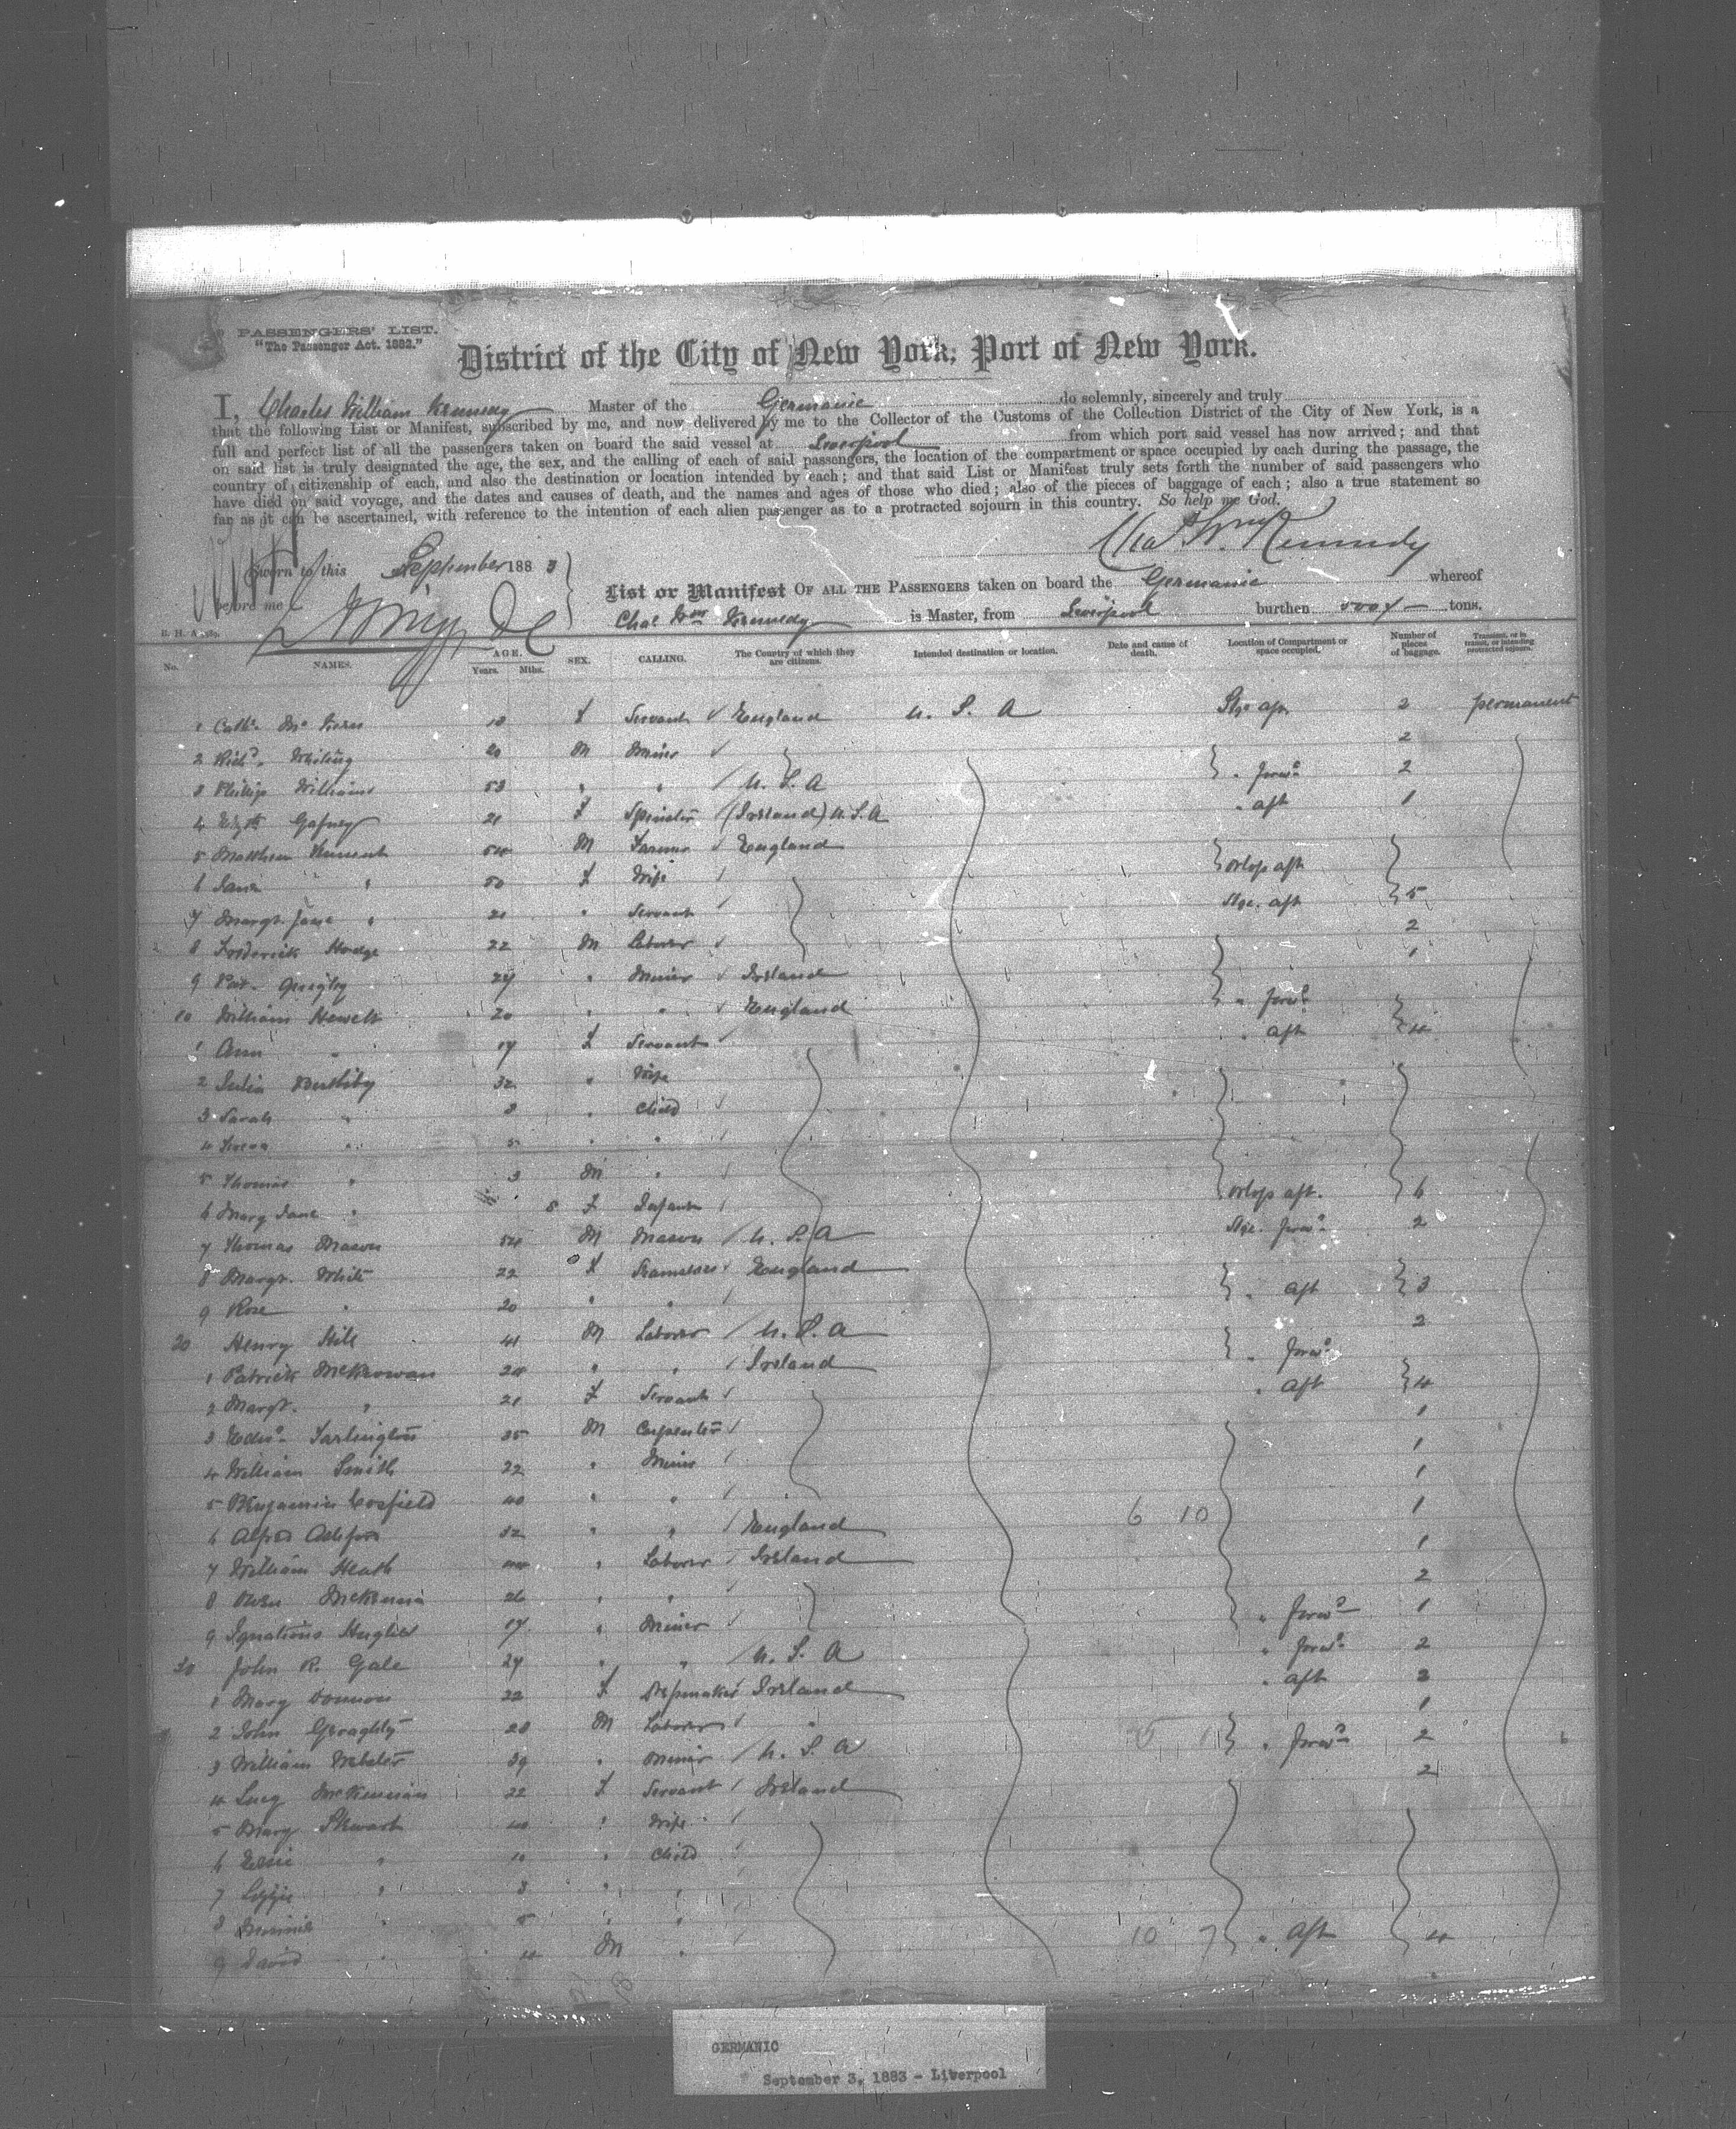 PASSENGERS' LIST.
"The Passenger Act. 1882."
District of the City of New York, Port of New York.
I, Charles William Kennedy Master of the Germanic do solemnly, sincerely and truly
that the following List or Manifest, subscribed by me, and now delivered by me to the Collector of the Customs of the Collection District of the City of New York, is a
full and perfect list of all the passengers taken on board the said vessel at Liverpool from which port said vessel has now arrived; and that
on said list is truly designated the age, the sex, and the calling of each of said passengers, the location of the compartment or space occupied by each during the passage, the
country of citizenship of each, and also the destination or location intended by each; and that said List or Manifest truly sets forth the number of said passengers who
have died on said voyage, and the dates and causes of death, and the names and ages of those who died; also of the pieces of baggage of each; also a true statement so
far as it can be ascertained, with reference to the intention of each alien passenger as to a protracted sojourn in this country. So help me God.
Chas Wm Kennedy
Sworn to this September 1883
before me
List or Manifest OF ALL THE PASSENGERS taken on board the Germanic whereof
Chas Wm Kennedy is Master, from Liverpool burthen 5004 tons.
No. NAMES. AGE. Years. Mths. SEX. CALLING. The Country of which they are citizens. Intended destination or location. Date and cause of death. Location of Compartment or space occupied. Number of pieces of baggage. Transient, or in transit, or intending protracted sojourn.
1 Cath. Mc 18 F Servant England U. S. A Stge aft 2 permanent
2 Richd. Whiting 20 M Miner 2
3 Philip Williams 53 " " U. S. A " forwd 2
4 Elizth Gafney 21 F Spinster (Ireland) U.S.A " aft 1
5 Matthew 54 M Farmer England
6 Jane " 50 F Wife Orlop aft
7 Margt. Jane " 21 " Servant Stge. aft 5
8 Frederick Hodge 22 M Laborer 2
9 Pat. Quigley 24 " Miner Ireland 1
10 William Hewett 20 " " England " forwd
1 Ann " 17 F Servant " aft 4
2 Julia 32 " Wife
3 Sarah " 8 " Child
4 " 5 " "
5 Thomas " 3 M "
6 Mary Jane " 8 F Infant Orlop aft. 6
7 Thomas Mason 54 M Mason U. S. A Stge. forwd 2
8 Margt. White 22 F England
9 Rose " 20 " " " aft 3
20 Henry Hill 41 M Laborer U. S. A 2
1 Patrick McKeowan 24 " " Ireland " forwd
2 Margt. " 21 F Servant " aft 4
3 Edwd. Tarlington 35 M Carpenter 1
4 William Smith 22 " Miner 1
5 Benjamin Cosfield 40 " " 1
6 Alfred 32 " " England 6 10 1
7 William Heath " Laborer Ireland 1
8 McKenna 26 " " 2
9 Ignatius Hughes 17 " Miner " forwd 1
30 John R. Gale 27 " " U. S. A " forwd 2
1 Mary 22 F Ireland " aft 2
2 John Geraghty 28 M Laborer " 1
3 William Webster 39 " Miner U. S. A " forwd 2
4 Lucy McKennan 22 F Servant Ireland 2
5 Mary Stewart 40 " Wife
6 " 10 " Child
7 Lizzie " 8 " "
8 Minnie " 5 " "
9 David " 4 M " 10 7 " aft 4
GERMANIC
September 3, 1883 - Liverpool